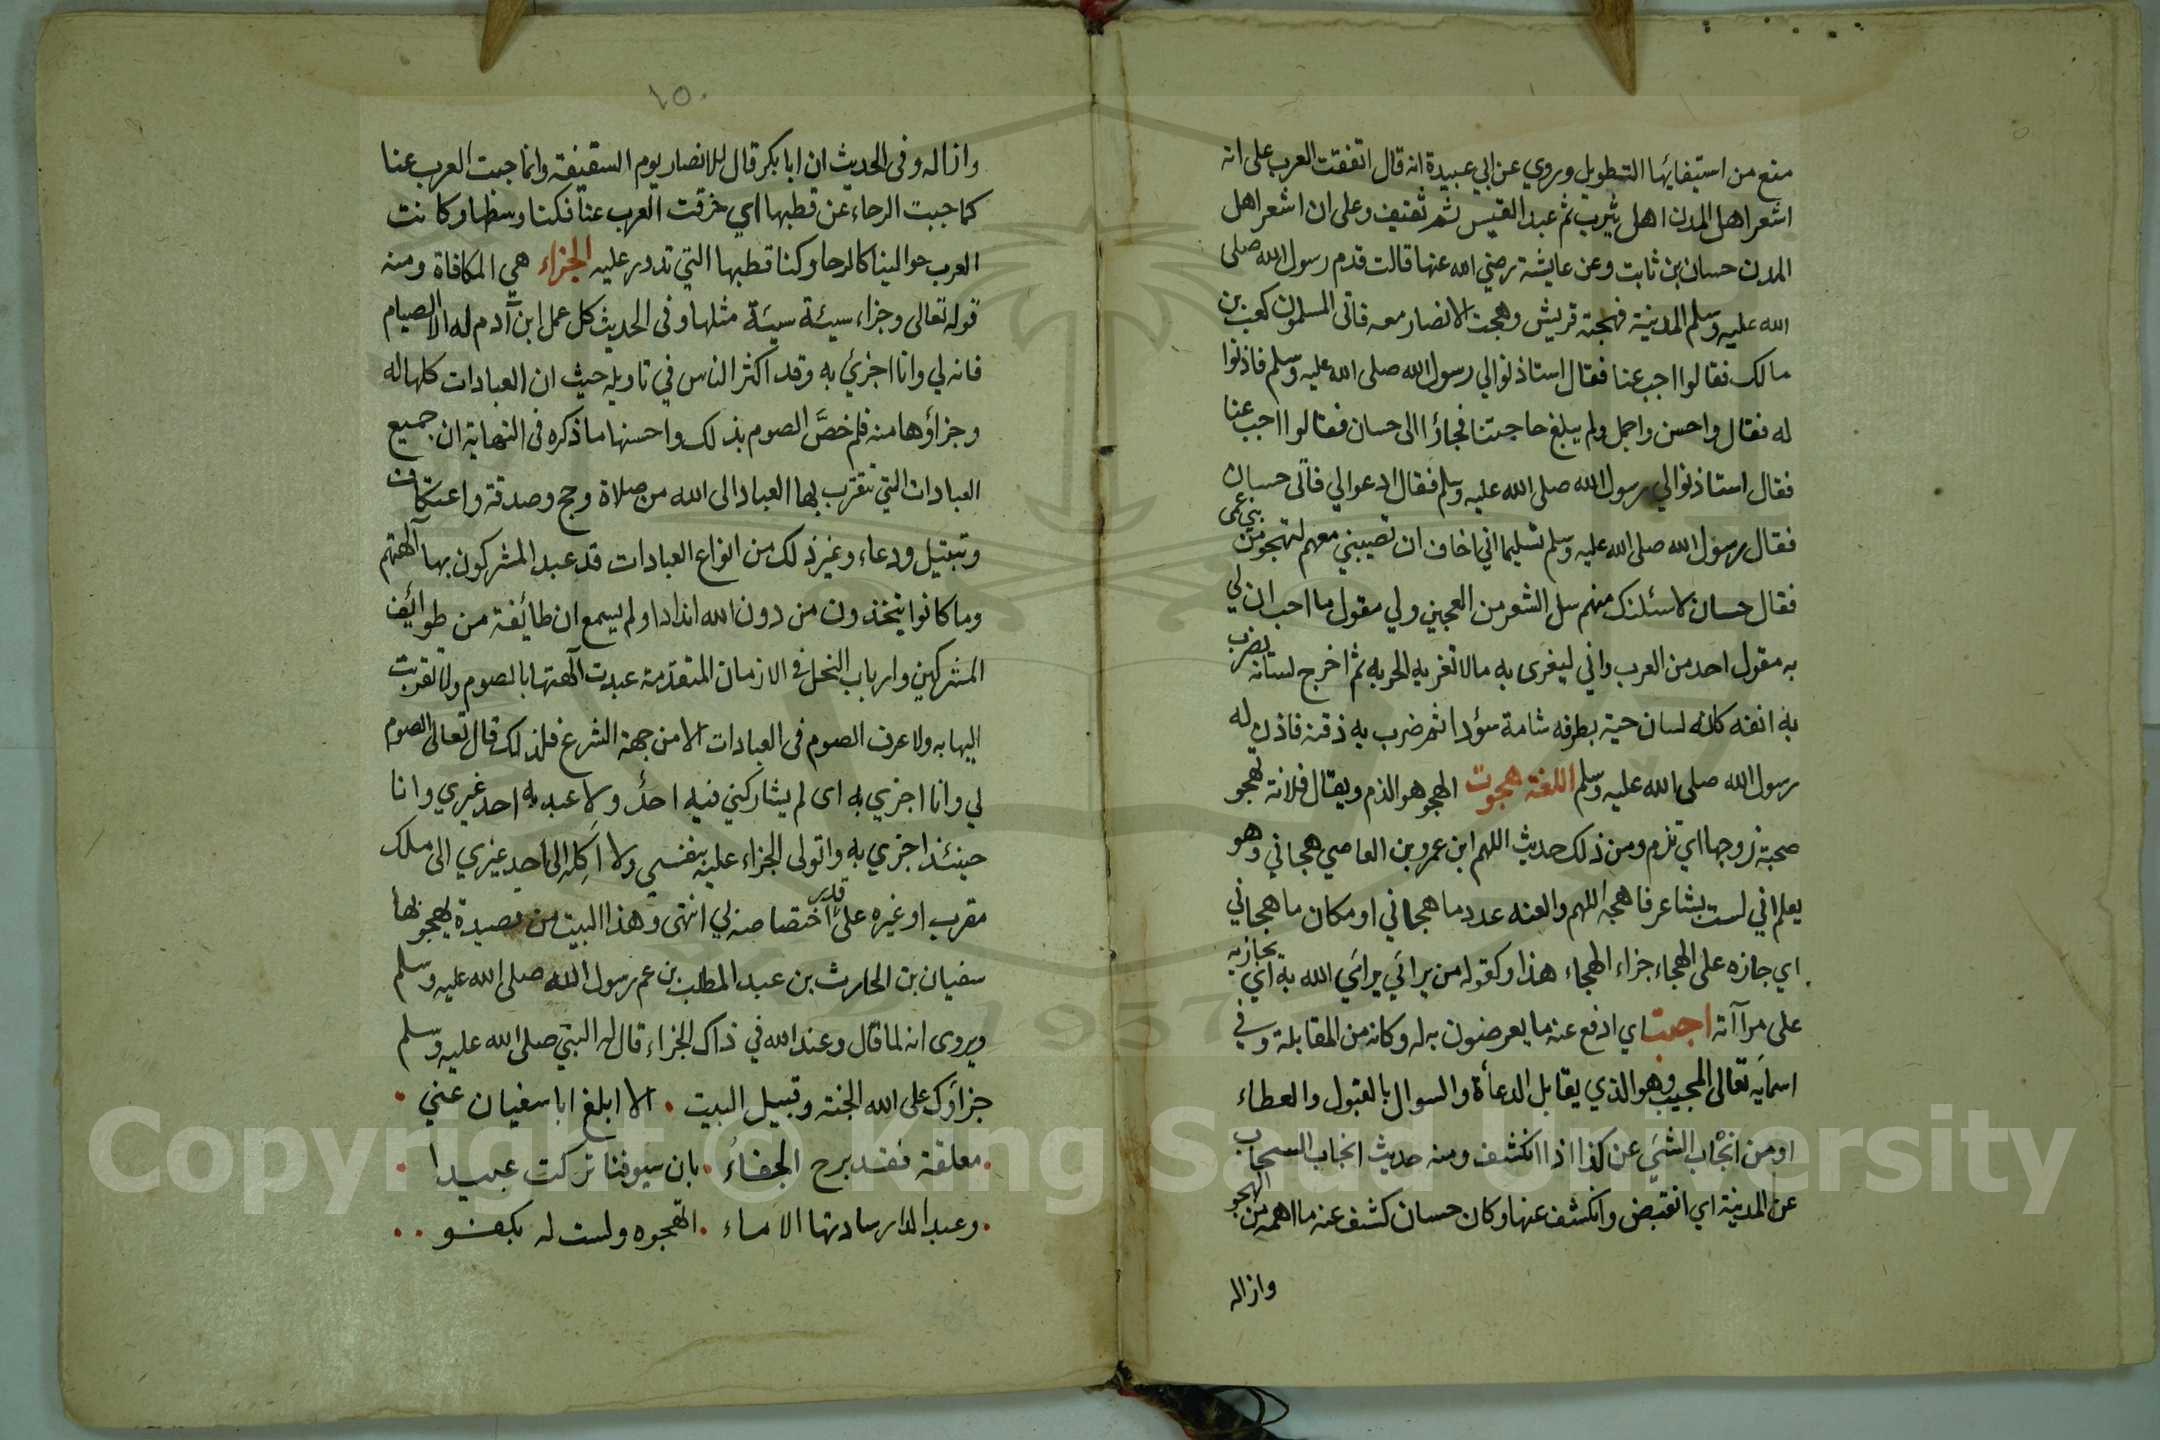 منع من استيفائها التطويل وروي عن ابي عبيدة انه قال اتفقت العرب على انه
اشعر اهل المدن اهل يثرب ثم عبد القيس ثم ثقيف وعلى ان اشعر اهل
المدن حسان بن ثابت وعن عايشة رضي الله عنها قالت قدم رسول الله صلى
الله عليه وسلم المدينة فهجته قريش وهجت الانصار معه فاتى المسلمون كعب بن
مالك فقالوا اجب عنا فقال استاذنوا لي رسول الله صلى الله عليه وسلم فاذنوا
له فقال واحسن واجمل ولم يبلغ حاجتنا فجاؤا الى حسان فقالوا اجب عنا
فقال استاذنوا لي رسول الله صلى الله عليه وسلم فقال ادعوا لي فاتى حسان
فقال رسول الله صلى الله عليه وسلم تسليما اني اخاف ان تصيبني معهم لتهجو من بني عمى
فقال حسان لاسئلنك منهم سل الشعر من العجين ولي مقول ما احب ان لي
به مقول احد من العرب واني ليفرى به مالا تفريه الحربه ثم اخرج لسانه يضرب
به انفه كانه لسان حية بطرفه شامة سؤدا ثم ضرب به ذقنه فاذن له
رسول الله صلى الله عليه وسلم اللغة هجوت الهجو هو الذم ويقال فلانة تهجو
صحبة زوجها اي تذم ومن ذلك حديث اللهم ابن عمرو بن العاصي هجاني وهو
يعلم اني لست بشاعر فاهجه اللهم والعنه عدد ما هجاني او مكان ما هجاني
اي جازه على الهجاء جزاء الهجاء هذا وكقوله من يرائي يرائي الله به اي يجازيه
على مراآته اجبت اي ادفع عنه ما يعرضون به له وكانه من المقابلة وفي
اسمايه تعالى المجيب وهو الذي يقابل الدعأة والسوال بالقبول والعطاء
او من انجاب الشي عن كذا اذا انكشف ومنه حديث انجاب السحاب
عن المدينة اي انقبض وانكشف عنها وكان حسان كشف عنه ما اهمه من الهجو
وازاله
١٥٠
وازاله وفي الحديث ان ابا بكر قال للانصار يوم السقيفة وانما جبت العرب عنا
كما جبت الرحاء عن قطبها اي خرقت العرب عنا فكنا وسطها وكانت
العرب حوالينا كالرحا وكنا قطبها التي تدور عليه الجزاء هي المكافاة ومنه
قوله تعالى وجزاء سيئة سيئة مثلها وفي الحديث كل عمل ابن آدم له الا الصيام
فانه لي وانا اجزئ به وقد اكثر الناس في تاويله حيث ان العبادات كلها له
وجزاؤها منه فلم خصَّ الصوم بذلك واحسنها ما ذكره في النهاية ان جميع
العبادات التي تتقرب بها العباد الى الله من صلاة وحج وصدقة واعتكاف
وتبتيل ودعاء وغير ذلك من انواع العبادات قد عبد المشركون بها آلهتهم
وما كانوا يتخذون من دون الله اندادا ولم يسمع ان طائفة من طوائف
المشركين وارباب النحل في الازمان المتقدمة عبدت آلهتها بالصوم ولا تقربت
اليها به ولا عرف الصوم في العبادات الا من جهة الشرع فلذلك قال تعالى الصوم
لي وانا اجزي به اى لم يشاركني فيه احدٌ ولا عبد به احد غيري وانا
حينئذ اجزي به واتولى الجزاء عليه بنفسي ولا اَكِله الى احدٍ غيري الى ملك
مقرب او غيره على قدر اختصاصه لي انتهى وهذا البيت من قصيدة يهجو بها
سفيان بن الحارث بن عبد المطلب بن عم رسول الله صلى الله عليه وسلم
ويروى انه لما قال وعند الله في ذاك الجزاء قال له النبي صلى الله عليه وسلم
جزاؤك على الله الجنة وقبيل البيت . الا ابلغ ابا سفيان عني .
. مغلغة فقد برح الخفاءُ . بان سيوفنا تركت عبيدا .
. وعبد الدار سادتها الاماء . اتهجوه ولست له بكفو . .
Copyright © King Saud University
1957